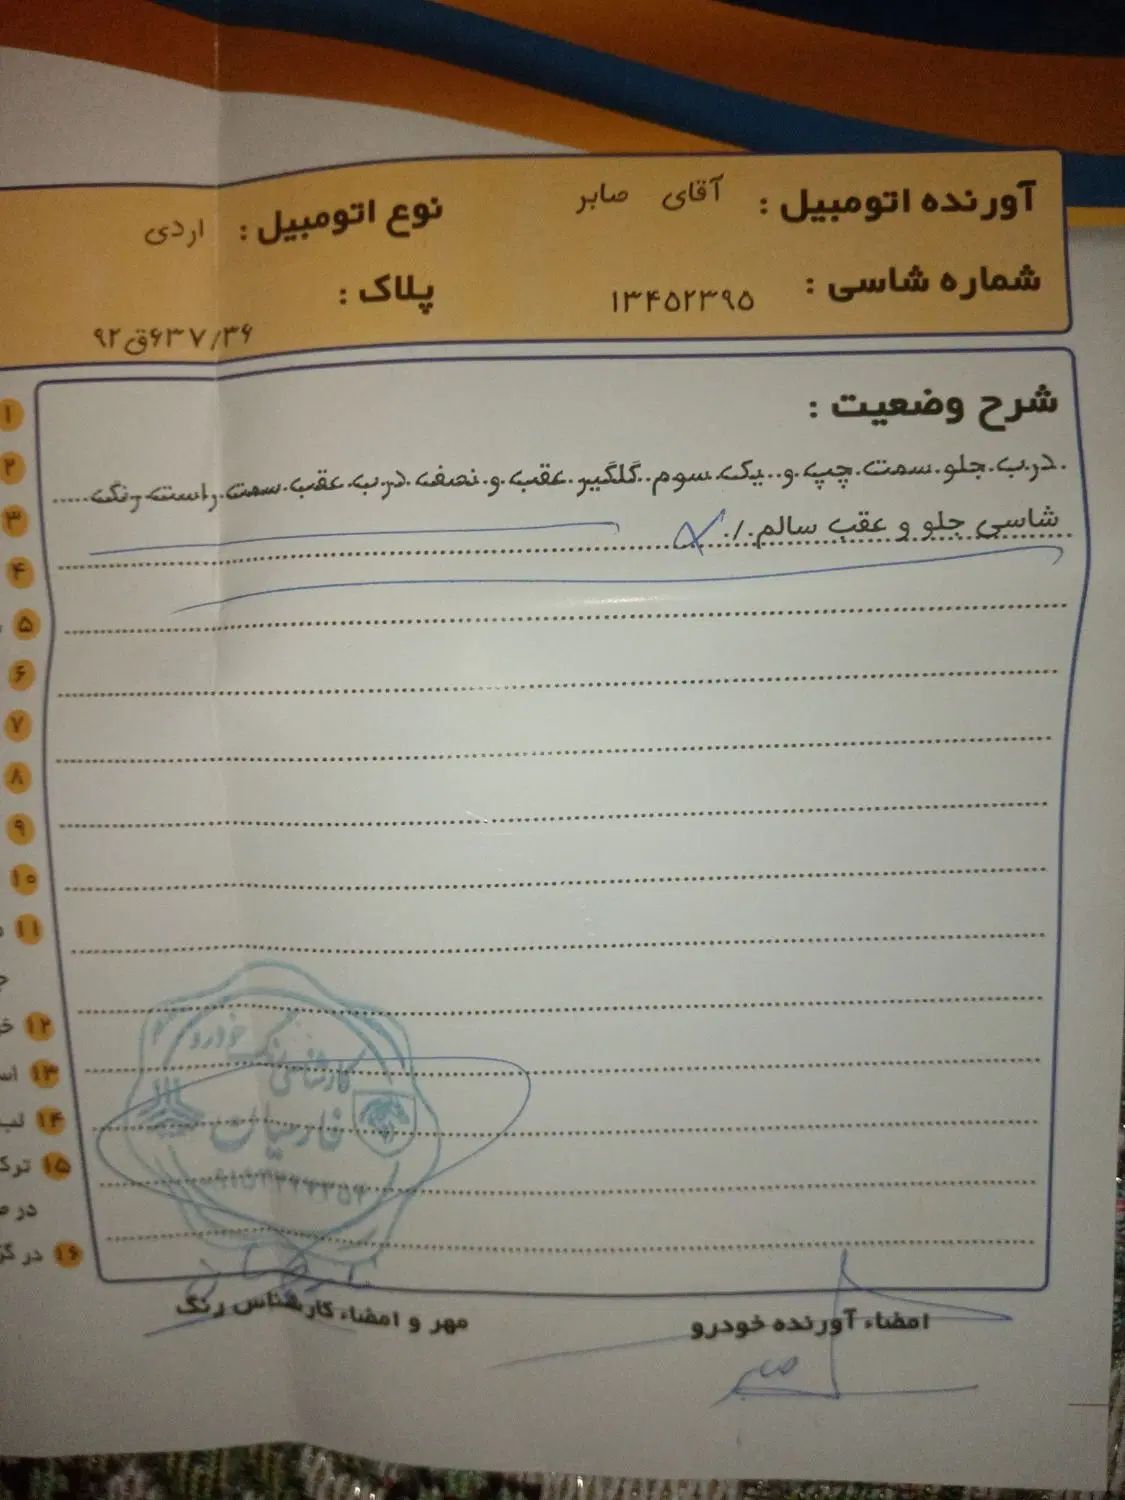 آورنده اتومبیل : آقای صابر نوع اتومبیل : اردی
شماره شاسی : ۱۳۴۵۲۳۹۵ پلاک : ۹۲ق۶۳۷/۳۶
شرح وضعیت :
درب جلو سمت چپ و یک سوم گلگیر عقب و نصف درب عقب سمت راست رنگ
شاسی جلو و عقب سالم ./.
۱
۲
۳
۴
۵
۶
۷
۸
۹
۱۰
۱۱
۱۲
۱۳
۱۴
۱۵
۱۶
کارشناسی رنگ خودرو
امضاء آورنده خودرو مهر و امضاء کارشناس رنگ